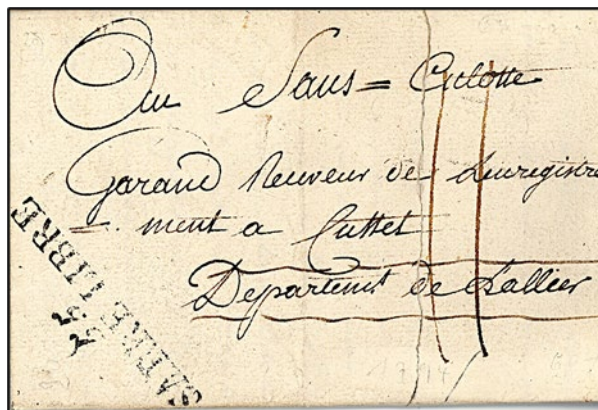 Au Sans=Culotte
Garand Receveur de Lenregistre
=ment a Cusset
Departemt de Lallier
11
55
SARRE LIBRE